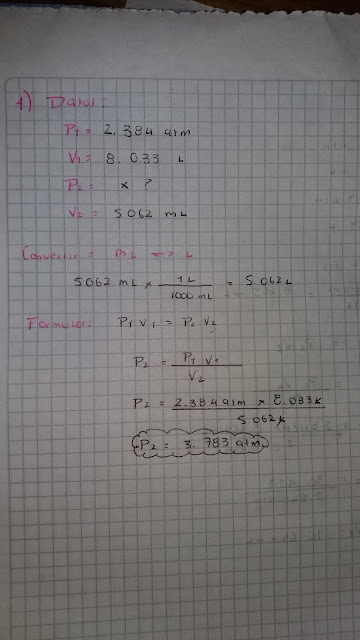 4) Datos:
P1 = 2.384 atm
V1 = 8.033 L
P2 = x ?
V2 = 5062 mL
Convertir = mL => L
5062 mL x 1L / 1000 mL = 5.062 L
Formula: P1 V1 = P2 V2
P2 = P1 V1 / V2
P2 = 2.384 atm x 8.033 L / 5.062 L
P2 = 3.783 atm